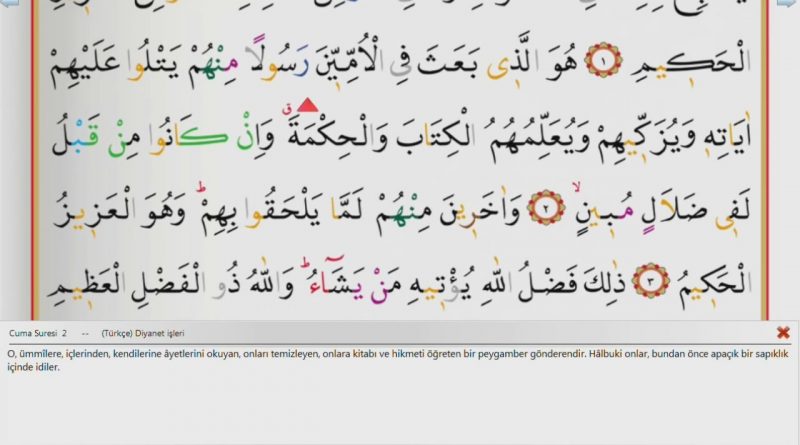 الْحَكِيمِ ﴿١﴾ هُوَ الَّذِى بَعَثَ فِى الْاُمِّيّٖنَ رَسُولًا مِنْهُمْ يَتْلُوا عَلَيْهِمْ
اٰيَاتِهٖ وَيُزَكّٖيهِمْ وَيُعَلِّمُهُمُ الْكِتَابَ وَالْحِكْمَةَ ۗ وَاِنْ كَانُوا مِنْ قَبْلُ
لَفٖى ضَلَالٍ مُبٖينٍ ۙ ﴿٢﴾ وَاٰخَرٖينَ مِنْهُمْ لَمَّا يَلْحَقُوا بِهِمْ ۜ وَهُوَ الْعَزٖيزُ
الْحَكٖيمُ ﴿٣﴾ ذٰلِكَ فَضْلُ اللّٰهِ يُؤْتٖيهِ مَنْ يَشَٓاءُ ۜ وَاللّٰهُ ذُو الْفَضْلِ الْعَظٖيمِ
Cuma Suresi 2 -- (Türkçe) Diyanet işleri
O, ümmîlere, içlerinden, kendilerine âyetlerini okuyan, onları temizleyen, onlara kitabı ve hikmeti öğreten bir peygamber gönderendir. Hâlbuki onlar, bundan önce apaçık bir sapıklık
içinde idiler.